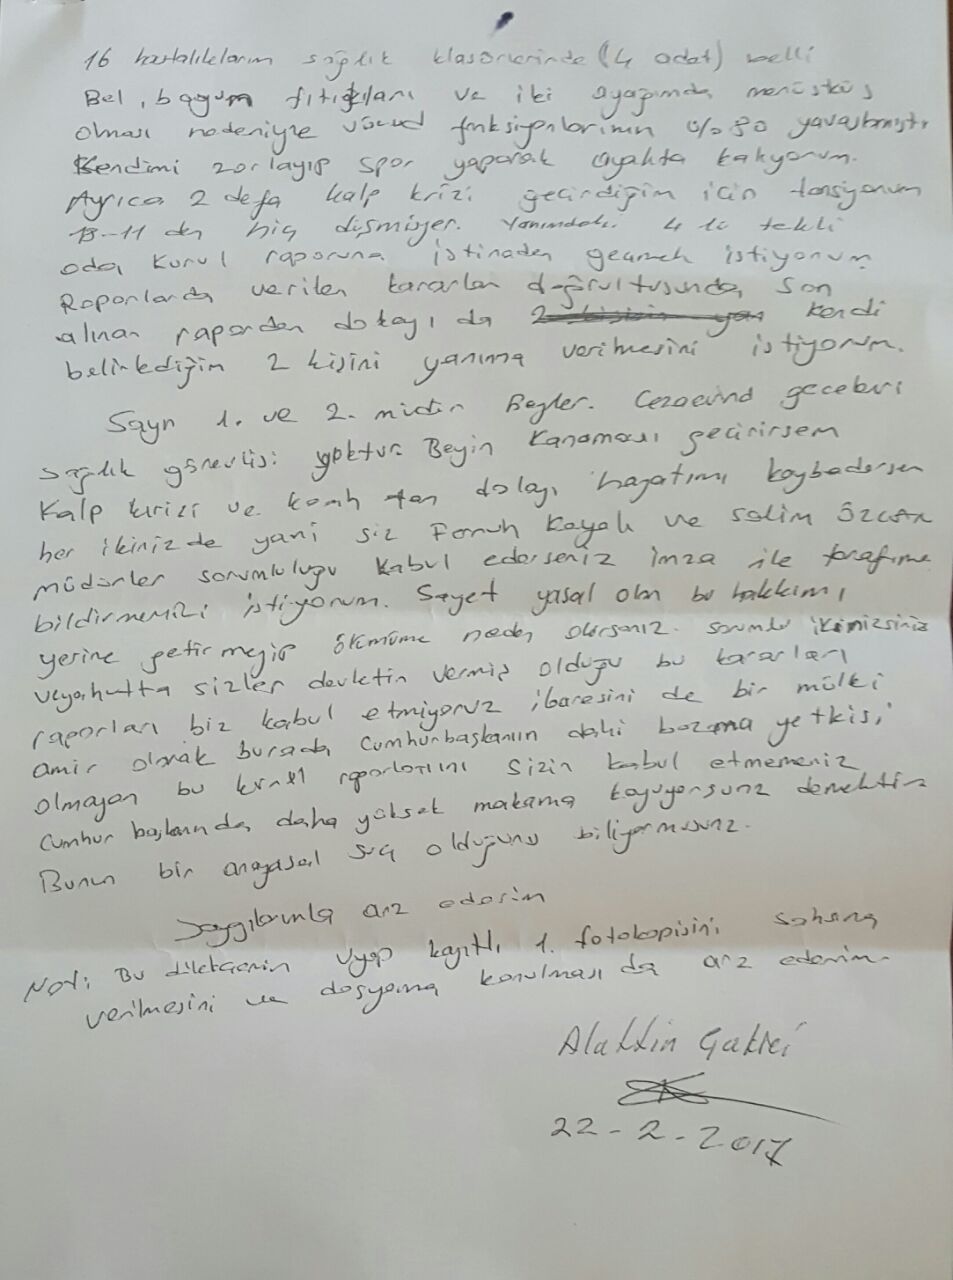 16 hastalıklarım sağlık klasörlerinde (4 adet) belli
Bel, boyun fıtıkları ve iki ayağımda menüsküs
olması nedeniyle vücud fonksiyonlarımın % 80 yavaşlamıştır
Kendimi zorlayıp spor yaparak ayakta kalıyorum.
Ayrıca 2 defa kalp krizi geçirdiğim için tansiyonum
13-11 den hiç düşmüyor. Yanımdaki 4 lü tekli
oda kurul raporuna istinaden geçmek istiyorum
Raporlarda verilen kararlar doğrultusunda, son
alınan rapordan dolayı da kendi
belirlediğim 2 kişini yanıma verilmesini istiyorum.
Sayın 1. ve 2. müdür Beyler. Cezaevind geceleri
sağlık görevlisi yoktur. Beyin kanaması geçirirsem
Kalp krizi ve dolayı hayatımı kaybedersem
her ikinizde yani siz Kayalı ve Salim Özcan
müdürler sorumluluğu kabul ederseniz imza ile tarafıma
bildirmenizi istiyorum. Şayet yasal olan bu hakkımı
yerine getirmeyip ölümüme neden olursanız. sorumlu ikinizsiniz
veyahutta sizler devletin vermiş olduğu bu kararları
raporları biz kabul etmiyoruz ibaresini de bir mülki
amir olarak burada Cumhurbaşkanın dahi bozma yetkisi
olmayan bu kurul raporlarını sizin kabul etmemeniz
Cumhur başkanında daha yüksek makama koyuyorsunuz demektir
Bunun bir anayasal suç olduğunu biliyormusunuz.
Saygılarımla arz ederim
NOT: Bu dilekçenin Uyap kayıtlı 1. fotokopisini şahsıma
verilmesini ve dosyama konulması da arz ederim.
Alattin Çakıcı
22-2-2017